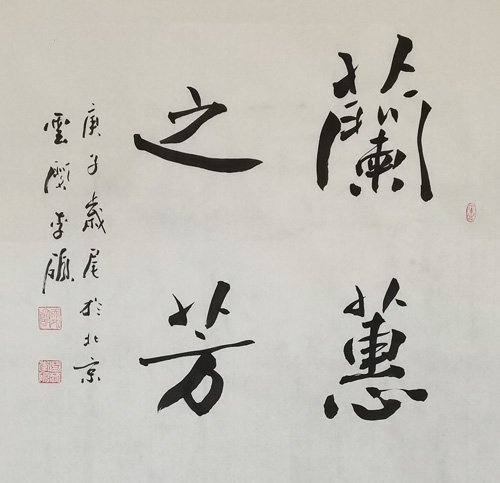 蘭蕙
之芳
庚子歲尾於北京
雲